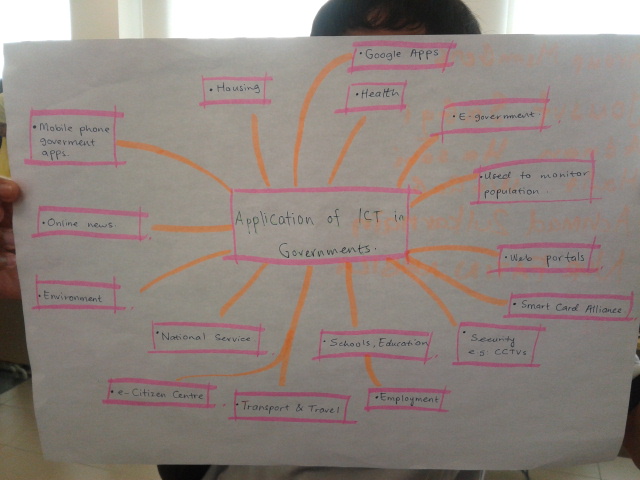 • Google Apps
• Housing
• Health
• E-government
• Mobile phone
goverment
apps.
• Used to monitor
population.
Application of ICT in
Governments.
• Online news.
• Web portals
• Environment
• Smart Card Alliance
• National Service
• Schools, Education
• Security
e.g. CCTVs
• e-Citizen Centre
• Transport & Travel
• Employment